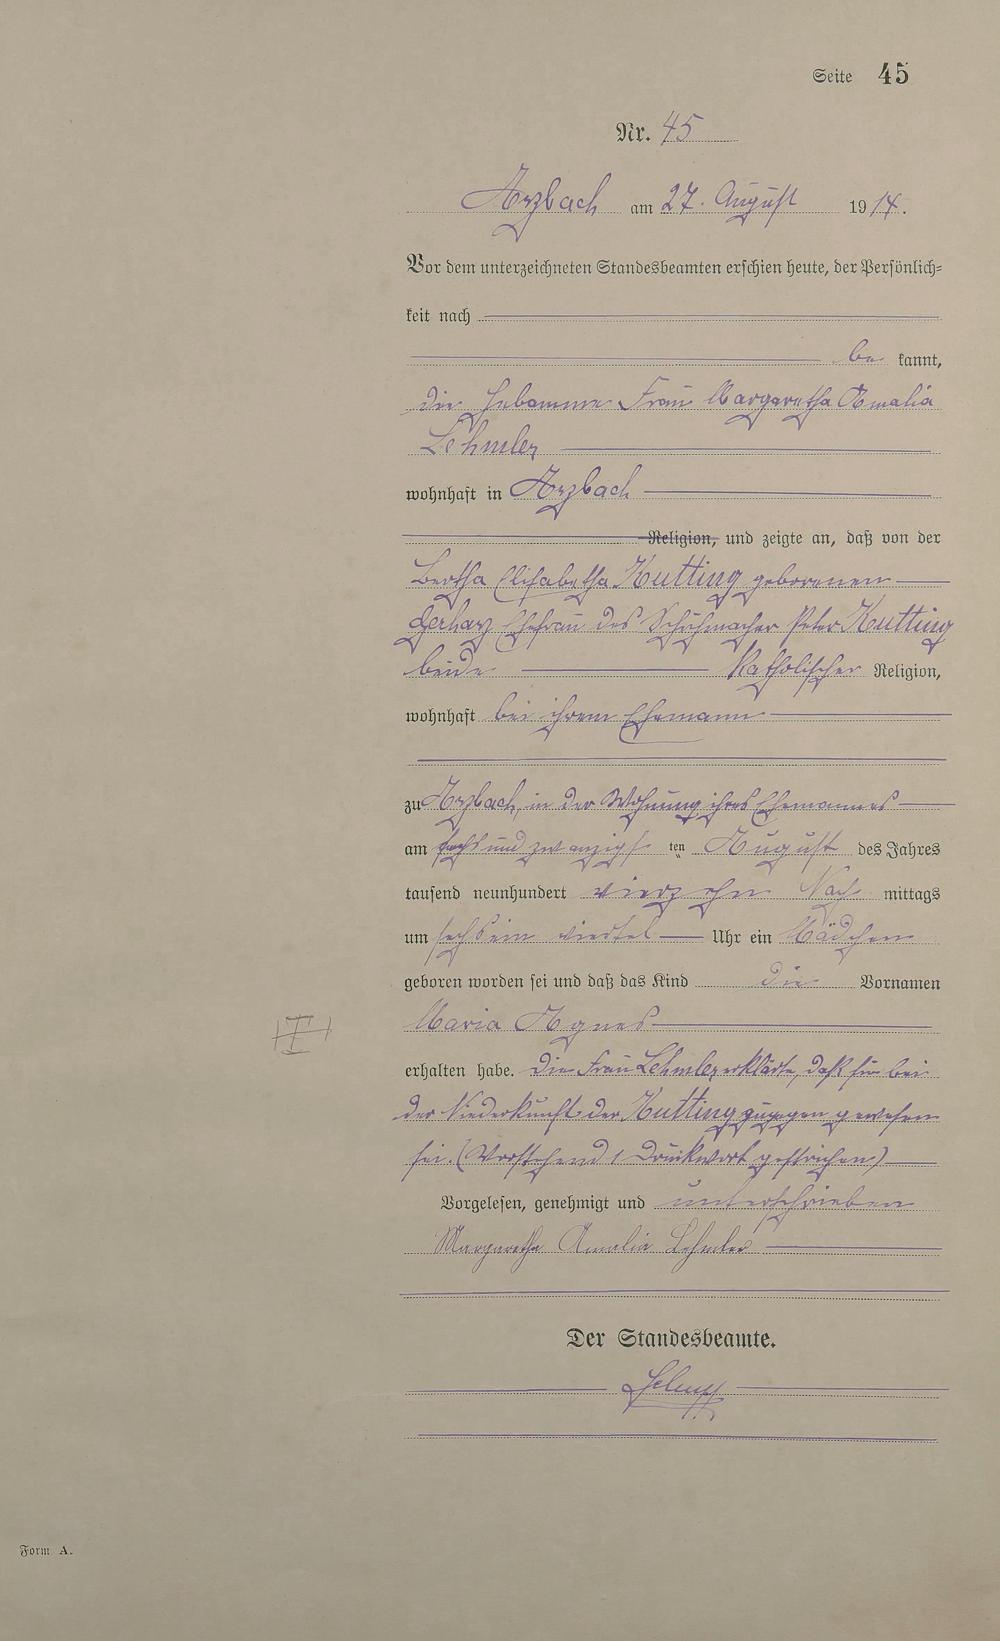 Seite 45
Nr. 45
Arzbach am 27. August 1914.
Vor dem unterzeichneten Standesbeamten erschien heute, der Persönlich-
keit nach
be kannt,
die Hebamme Frau Margaretha Amalia
Lehmler
wohnhaft in Arzbach
Religion, und zeigte an, daß von der
Bertha Elisabetha Kutting geborenen
Gerharz Ehefrau des Schuhmacher Peter Kutting
beide Katholischer Religion,
wohnhaft bei ihrem Ehemann
zu Arzbach, in der Wohnung ihres Ehemannes
am sechs und zwanzigs ten August des Jahres
tausend neunhundert vierzehn Nach mittags
um sechs ein viertel Uhr ein Mädchen
geboren worden sei und daß das Kind die Vornamen
Maria Agnes
erhalten habe. Die Frau Lehmler erklärte, daß sie bei
der Niederkunft der Kutting zugegen gewesen
sei. (Vorstehend 1 Druckwort gestrichen)
Vorgelesen, genehmigt und unterschrieben
Margaretha Amalia Lehmler
Der Standesbeamte.
Form A.